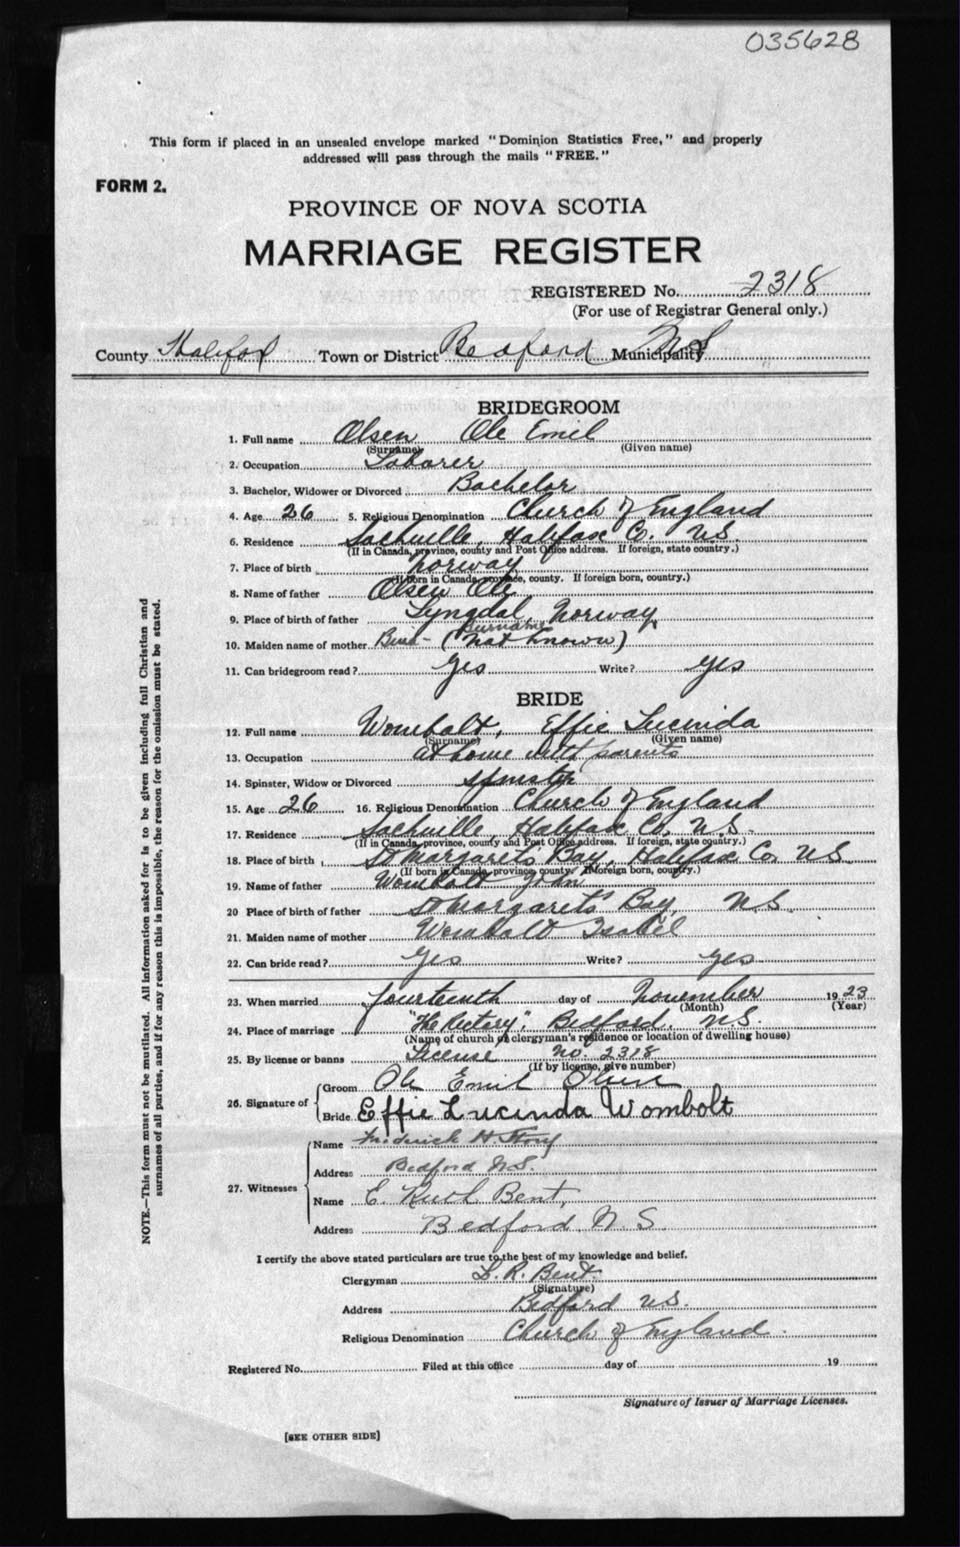 035628
This form if placed in an unsealed envelope marked "Dominion Statistics Free," and properly
addressed will pass through the mails "FREE."
FORM 2.
PROVINCE OF NOVA SCOTIA
MARRIAGE REGISTER
REGISTERED No. 2318
(For use of Registrar General only.)
County Halifax Town or District Bedford Municipality N S
BRIDEGROOM
1. Full name Olsen Ole Emil
(Surname) (Given name)
2. Occupation Laborer
3. Bachelor, Widower or Divorced Bachelor
4. Age 26 5. Religious Denomination Church of England
6. Residence Sackville, Halifax Co. N.S.
(If in Canada, province, county and Post Office address. If foreign, state country.)
7. Place of birth Norway
(If born in Canada, province, county. If foreign born, country.)
8. Name of father Olsen Ole
9. Place of birth of father Lyngdal, Norway
10. Maiden name of mother (Surname not known)
11. Can bridegroom read? Yes Write? Yes
BRIDE
12. Full name Wombolt, Effie Lucinda
(Surname) (Given name)
13. Occupation at home with parents
14. Spinster, Widow or Divorced spinster
15. Age 26 16. Religious Denomination Church of England
17. Residence Sackville, Halifax Co. N.S.
(If in Canada, province, county and Post Office address. If foreign, state country.)
18. Place of birth St Margaret's Bay, Halifax Co, N S
(If born in Canada, province, county. If foreign born, country.)
19. Name of father Wombolt John
20 Place of birth of father St Margaret's Bay N.S.
21. Maiden name of mother Wombolt Isabel
22. Can bride read? Yes Write? yes
23. When married fourteenth day of November 1923
(Month) (Year)
24. Place of marriage "The Rectory", Bedford, N.S.
(Name of church or clergyman's residence or location of dwelling house)
25. By license or banns License no. 2318
(If by license, give number)
26. Signature of Groom Ole Emil Olsen
Bride Effie Lucinda Wombolt
27. Witnesses Name Frederick H. Story
Address Bedford N.S.
Name E. Ruth Bent,
Address Bedford N. S.
I certify the above stated particulars are true to the best of my knowledge and belief.
Clergyman L. R. Bent.
(Signature)
Address Bedford N.S.
Religious Denomination Church of England.
Registered No. Filed at this office day of 19
Signature of Issuer of Marriage Licenses.
[SEE OTHER SIDE]
NOTE.—This form must not be mutilated. All information asked for is to be given including full Christian and
surnames of all parties, and if for any reason this is impossible, the reason for the omission must be stated.